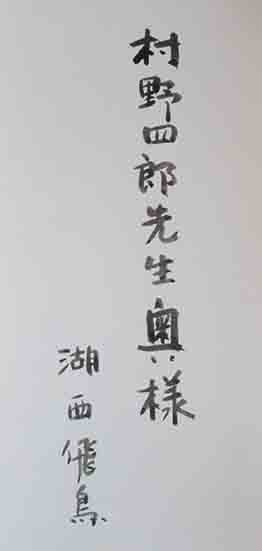 村野四郎先生奥様
湖西飛鳥